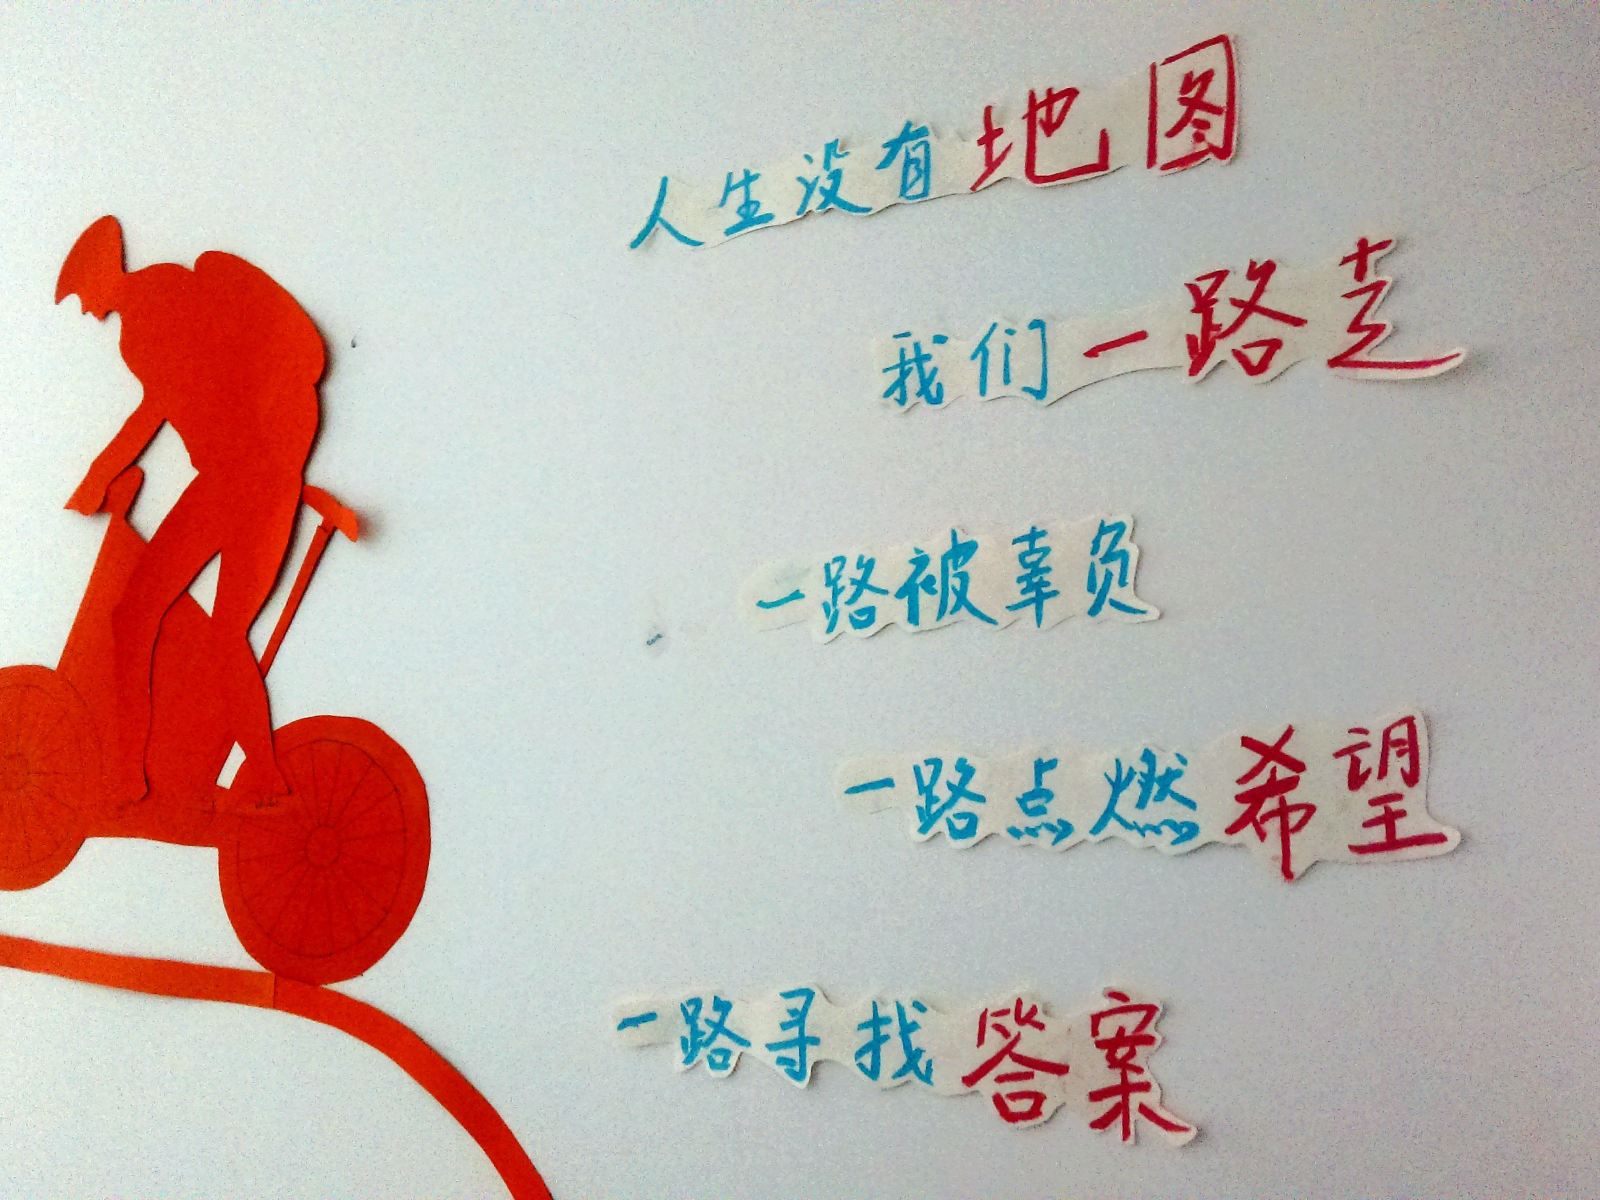 人生没有地图
我们一路走
一路被辜负
一路点燃希望
一路寻找答案